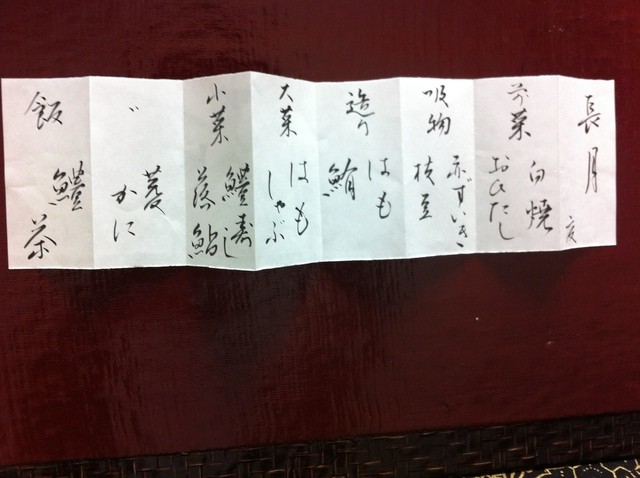 長月
亥
前菜
白焼
おひたし
吸物
赤ずいき
枝豆
造り
はも
鮪
大菜
はも
しゃぶ
小菜
鱧寿し
落鮎
〃
菱
かに
飯
鱧茶